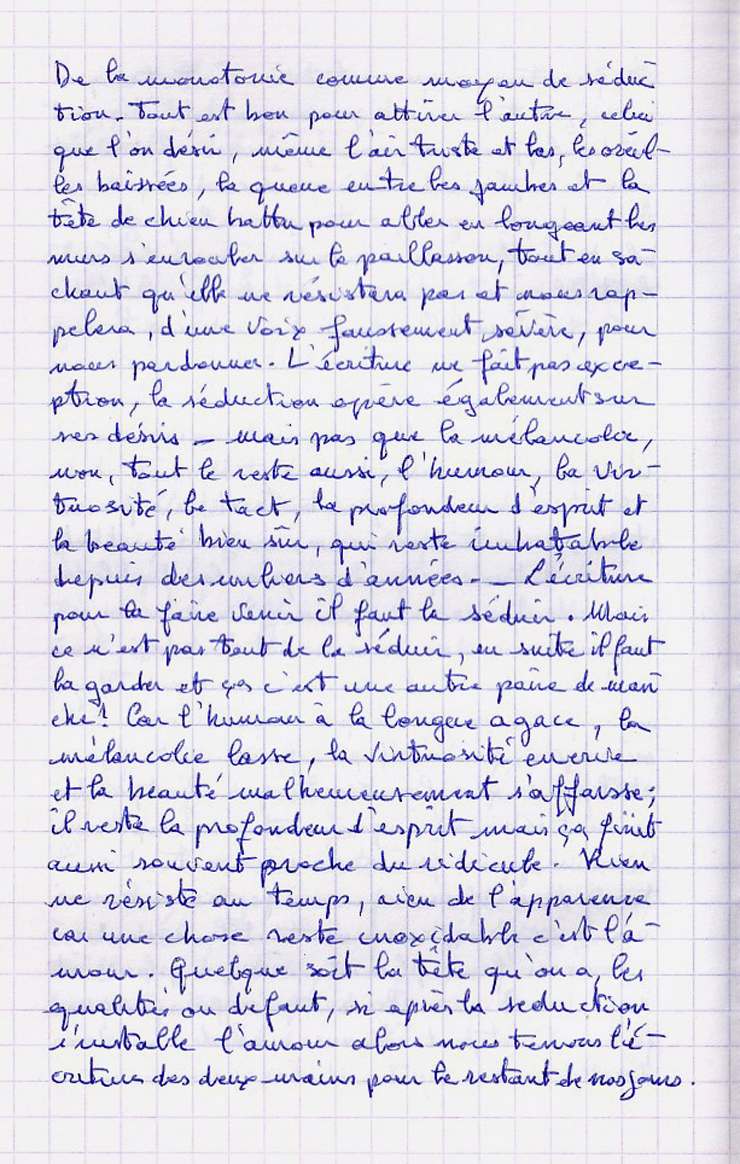 De la monotonie comme moyen de séduc
tion. Tout est bon pour attirer l'autre, celui
que l'on désir, même l'air triste et las, les oreil-
les baissées, la queue entre les jambes et la
tête de chien battu pour aller en longeant les
murs s'enrouler sur le paillasson, tout en sa-
chant qu'elle ne résistera pas et nous rap-
pelera, d'une voix faussement sévère, pour
nous pardonner. L'écriture ne fait pas exce-
ption, la séduction opère également sur
ses désirs - mais pas que la mélancolie,
non, tout le reste aussi, l'humour, la vir-
tuosité, le tact, la profondeur d'esprit et
la beauté bien sûr, qui reste imbatable
depuis des milliers d'années. - L'écriture
pour la faire venir il faut la séduir. Mais
ce n'est pas tout de la séduir, en suite il faut
la garder et ça c'est une autre paire de man
che! Car l'humour à la longue agace, la
mélancolie lasse, la virtuosité énerve
et la beauté malheureusement s'affaisse;
il reste la profondeur d'esprit mais ça finit
aussi souvent proche du ridicule. Rien
ne résiste au temps, rien de l'apparence
car une chose reste inoxidable c'est l'a-
mour. Quelque soit la tête qu'on a, les
qualités ou défaut, si après la séduction
s'installe l'amour alors nous tenons l'é-
criture des deux mains pour le restant de nos jours.